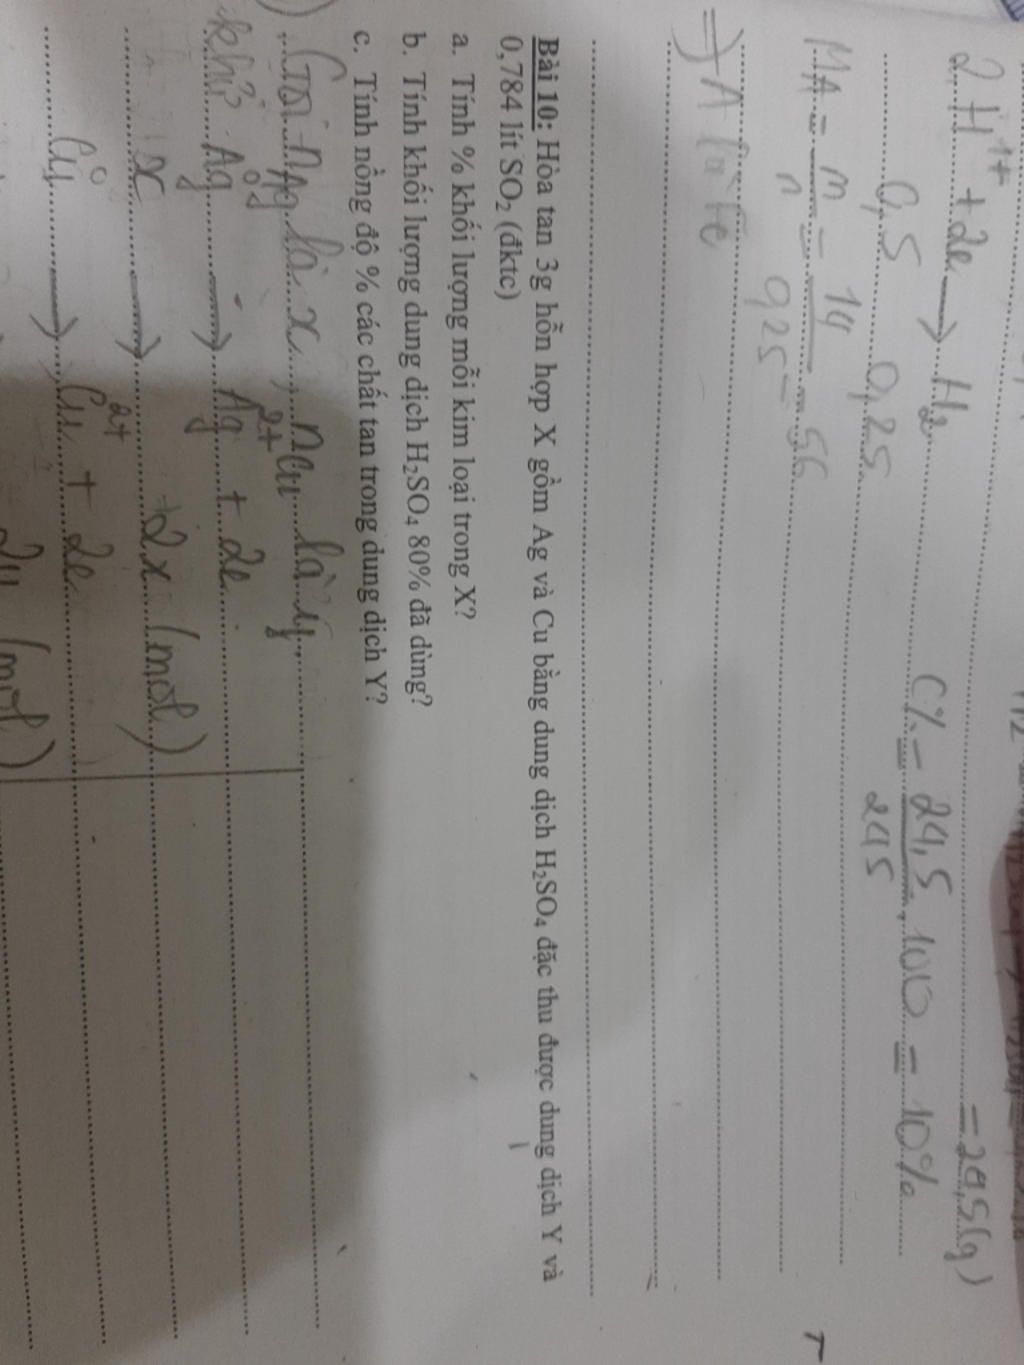 2H¹⁺ + 2e → H₂
= 24,5(g)
0,5 0,25
C% = 24,5 . 100 = 10%
245
MA = m = 14 = 56
n 0,25
⇒ A là Fe
Bài 10: Hòa tan 3g hỗn hợp X gồm Ag và Cu bằng dung dịch H₂SO₄ đặc thu được dung dịch Y và
0,784 lít SO₂ (đktc)
a. Tính % khối lượng mỗi kim loại trong X?
b. Tính khối lượng dung dịch H₂SO₄ 80% đã dùng?
c. Tính nồng độ % các chất tan trong dung dịch Y?
Gọi nAg là x, nCu là y
khử: Ag⁰ → Ag²⁺ + 2e
x → 2x (mol)
Cu⁰ → Cu²⁺ + 2e
2y (mol)